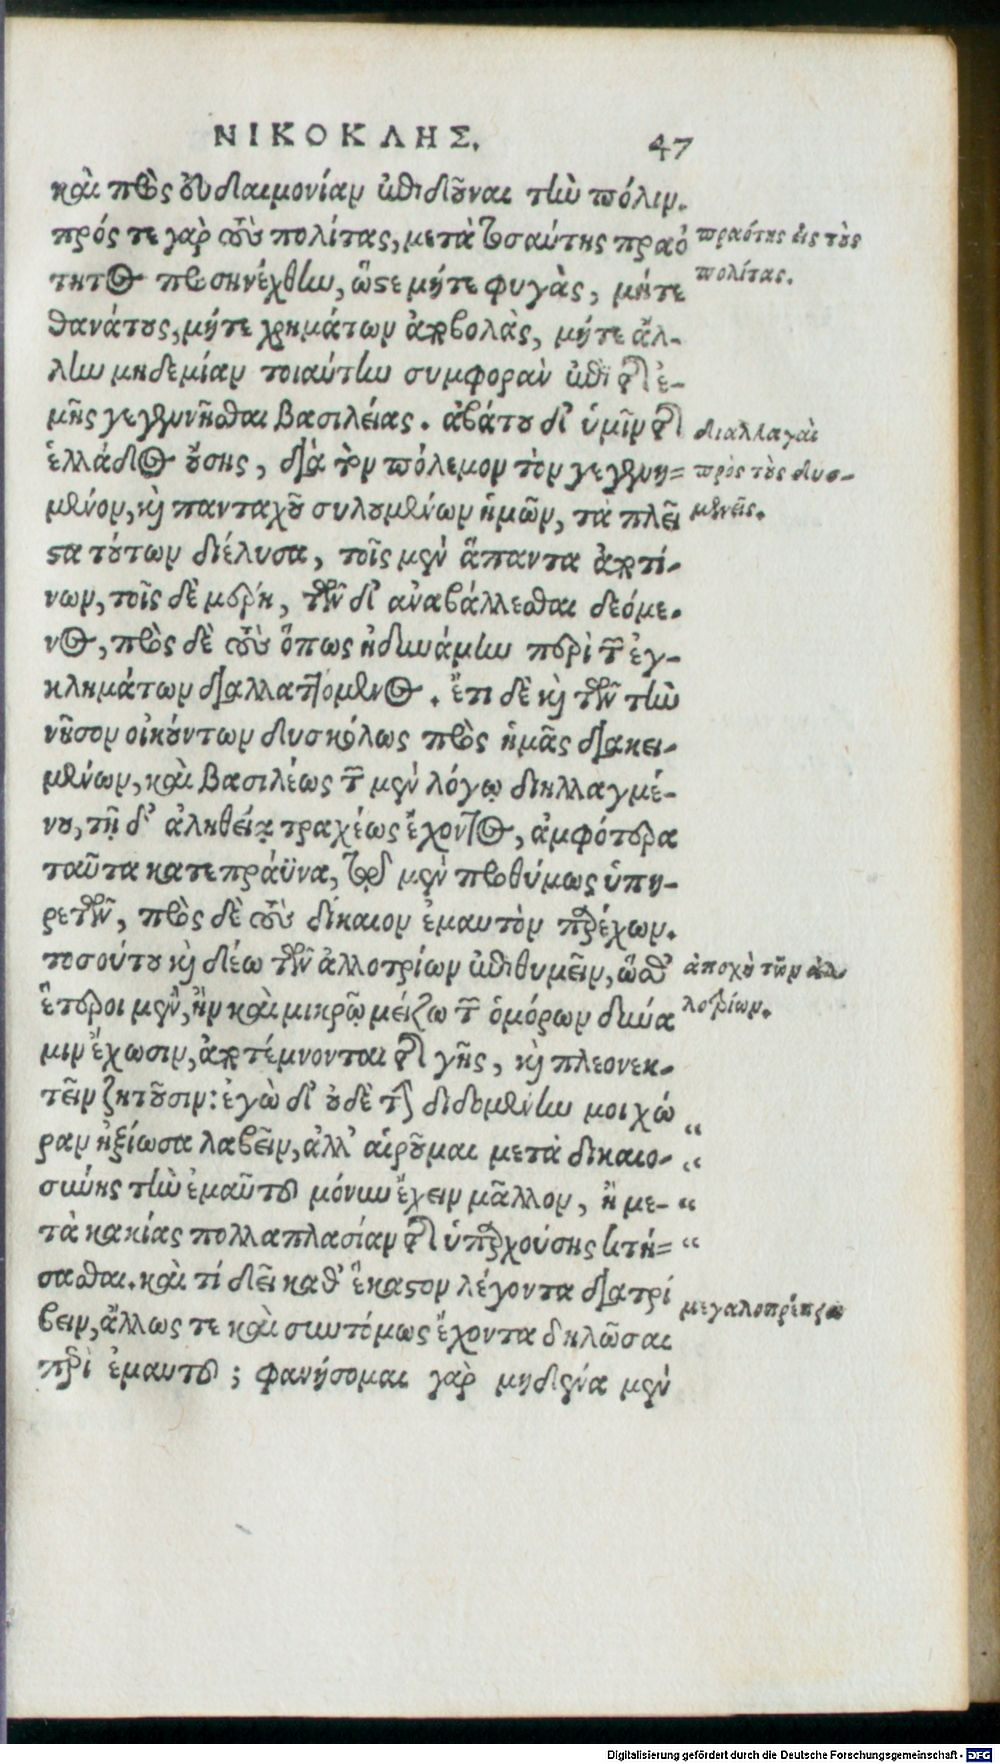 ΝΙΚΟΚΛΗΣ. 47
καὶ πρὸς εὐδαιμονίαν ἐπιδοῦναι τὴν πόλιν.
πρός τε γὰρ τοὺς πολίτας, μετὰ τοσαύτης πραό
τητος προσηνέχθην, ὥστε μήτε φυγὰς, μήτε
θανάτους, μήτε χρημάτων ἀποβολὰς, μήτε ἄλ-
λην μηδεμίαν τοιαύτην συμφορὰν ἐπὶ τῆς ἐ-
μῆς γεγενῆσθαι βασιλείας. ἀβάτου δ' ὑμῖν τῆς
ἑλλάδος οὔσης, διὰ τὸν πόλεμον τὸν γεγενη-
μένον, καὶ πανταχοῦ συλουμένων ἡμῶν, τὰ πλεῖ
στα τούτων διέλυσα, τοῖς μὲν ἅπαντα ἀποτί-
νων, τοῖς δὲ μέρη, τῶν δ' ἀναβάλλεσθαι δεόμε-
νος, πρὸς δὲ τοὺς ὅπως ἠδυνάμην περὶ τῶν ἐγ-
κλημάτων διαλλαττόμενος. ἔτι δὲ καὶ τῶν τὴν
νῆσον οἰκούντων δυσκόλως πρὸς ἡμᾶς διακει-
μένων, καὶ βασιλέως τῷ μὲν λόγῳ διηλλαγμέ-
νου, τῇ δ' ἀληθείᾳ τραχέως ἔχοντος, ἀμφότερα
ταῦτα κατεπράϋνα, τῷ μὲν προθύμως ὑπη-
ρετεῖν, πρὸς δὲ τοὺς δίκαιον ἐμαυτὸν παρέχων.
τοσούτου καὶ δέω τῶν ἀλλοτρίων ἐπιθυμεῖν, ὥσθ'
ἕτεροι μὲν, ἢν καὶ μικρῷ μείζω τῶν ὁμόρων δύνα
μιν ἔχωσιν, ἀποτέμνονται τῆς γῆς, καὶ πλεονεκ-
τεῖν ζητοῦσιν: ἐγὼ δ' οὐδὲ τὴν διδομένην μοι χώ
ραν ἠξίωσα λαβεῖν, ἀλλ' αἱροῦμαι μετὰ δικαιο-
σύνης τὴν ἐμαυτοῦ μόνην ἔχειν μᾶλλον, ἢ με-
τὰ κακίας πολλαπλασίαν τῆς ὑπαρχούσης κτή-
σασθαι. καὶ τί δεῖ καθ' ἕκαστον λέγοντα διατρί
βειν, ἄλλως τε καὶ συντόμως ἔχοντα δηλῶσαι
περὶ ἐμαυτοῦ; φανήσομαι γὰρ μηδένα μὲν
πραότης εἰς τοὺς
πολίτας.
διαλλαγαὶ
πρὸς τοὺς δυσ-
μενεῖς.
ἀποχὴ τῶν ἀλ
λοτρίων.
“
“
“
“
μεγαλοπρέπεια
Digitalisierung gefördert durch die Deutsche Forschungsgemeinschaft - DFG